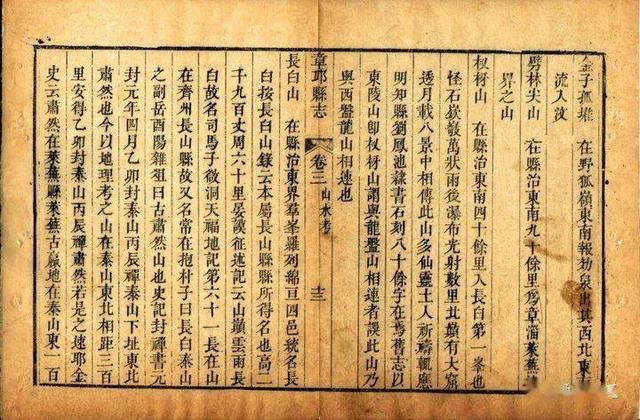 金子孤堆 在野狐嶺東南報幼泉出其西北東
流入汶
劈林尖山 在縣治東南九十餘里爲章淄萊蕪
界之山
杈枒山 在縣治東南四十餘里入長白第一峯也
怪石嶔
萬狀雨後瀑布光射數里北巓有大窟
透月載八景中相傳此山多仙靈土人祈禱輒應
明知縣劉鳳池隸書石刻八十餘字在焉舊志以
東陵山卽杈枒山謂與龍盤山相連者誤此山乃
與西盤龍山相連也
章邱縣志 卷三 山水考 十三
長白山 在縣治東界羣峯羅列綿亘四邑統名長
白按長白山錄云本屬長山縣縣所得名也高二
千九百丈周六十里晏謨征途記云山巔雲雨長
白故名司馬子微洞天福地記第六十一長在山
在齊州長山縣故又名常在抱朴子曰長白泰山
之副岳酉陽雜俎曰古肅然山也史記封禪書元
封元年四月乙卯封泰山丙辰禪肅然下址東北
肅然也今以地理考之山在泰山東北相距三百
里安得乙卯封泰山丙辰禪肅然若是之速耶金
史云肅然在萊蕪縣萊蕪古嬴地在泰山東一百